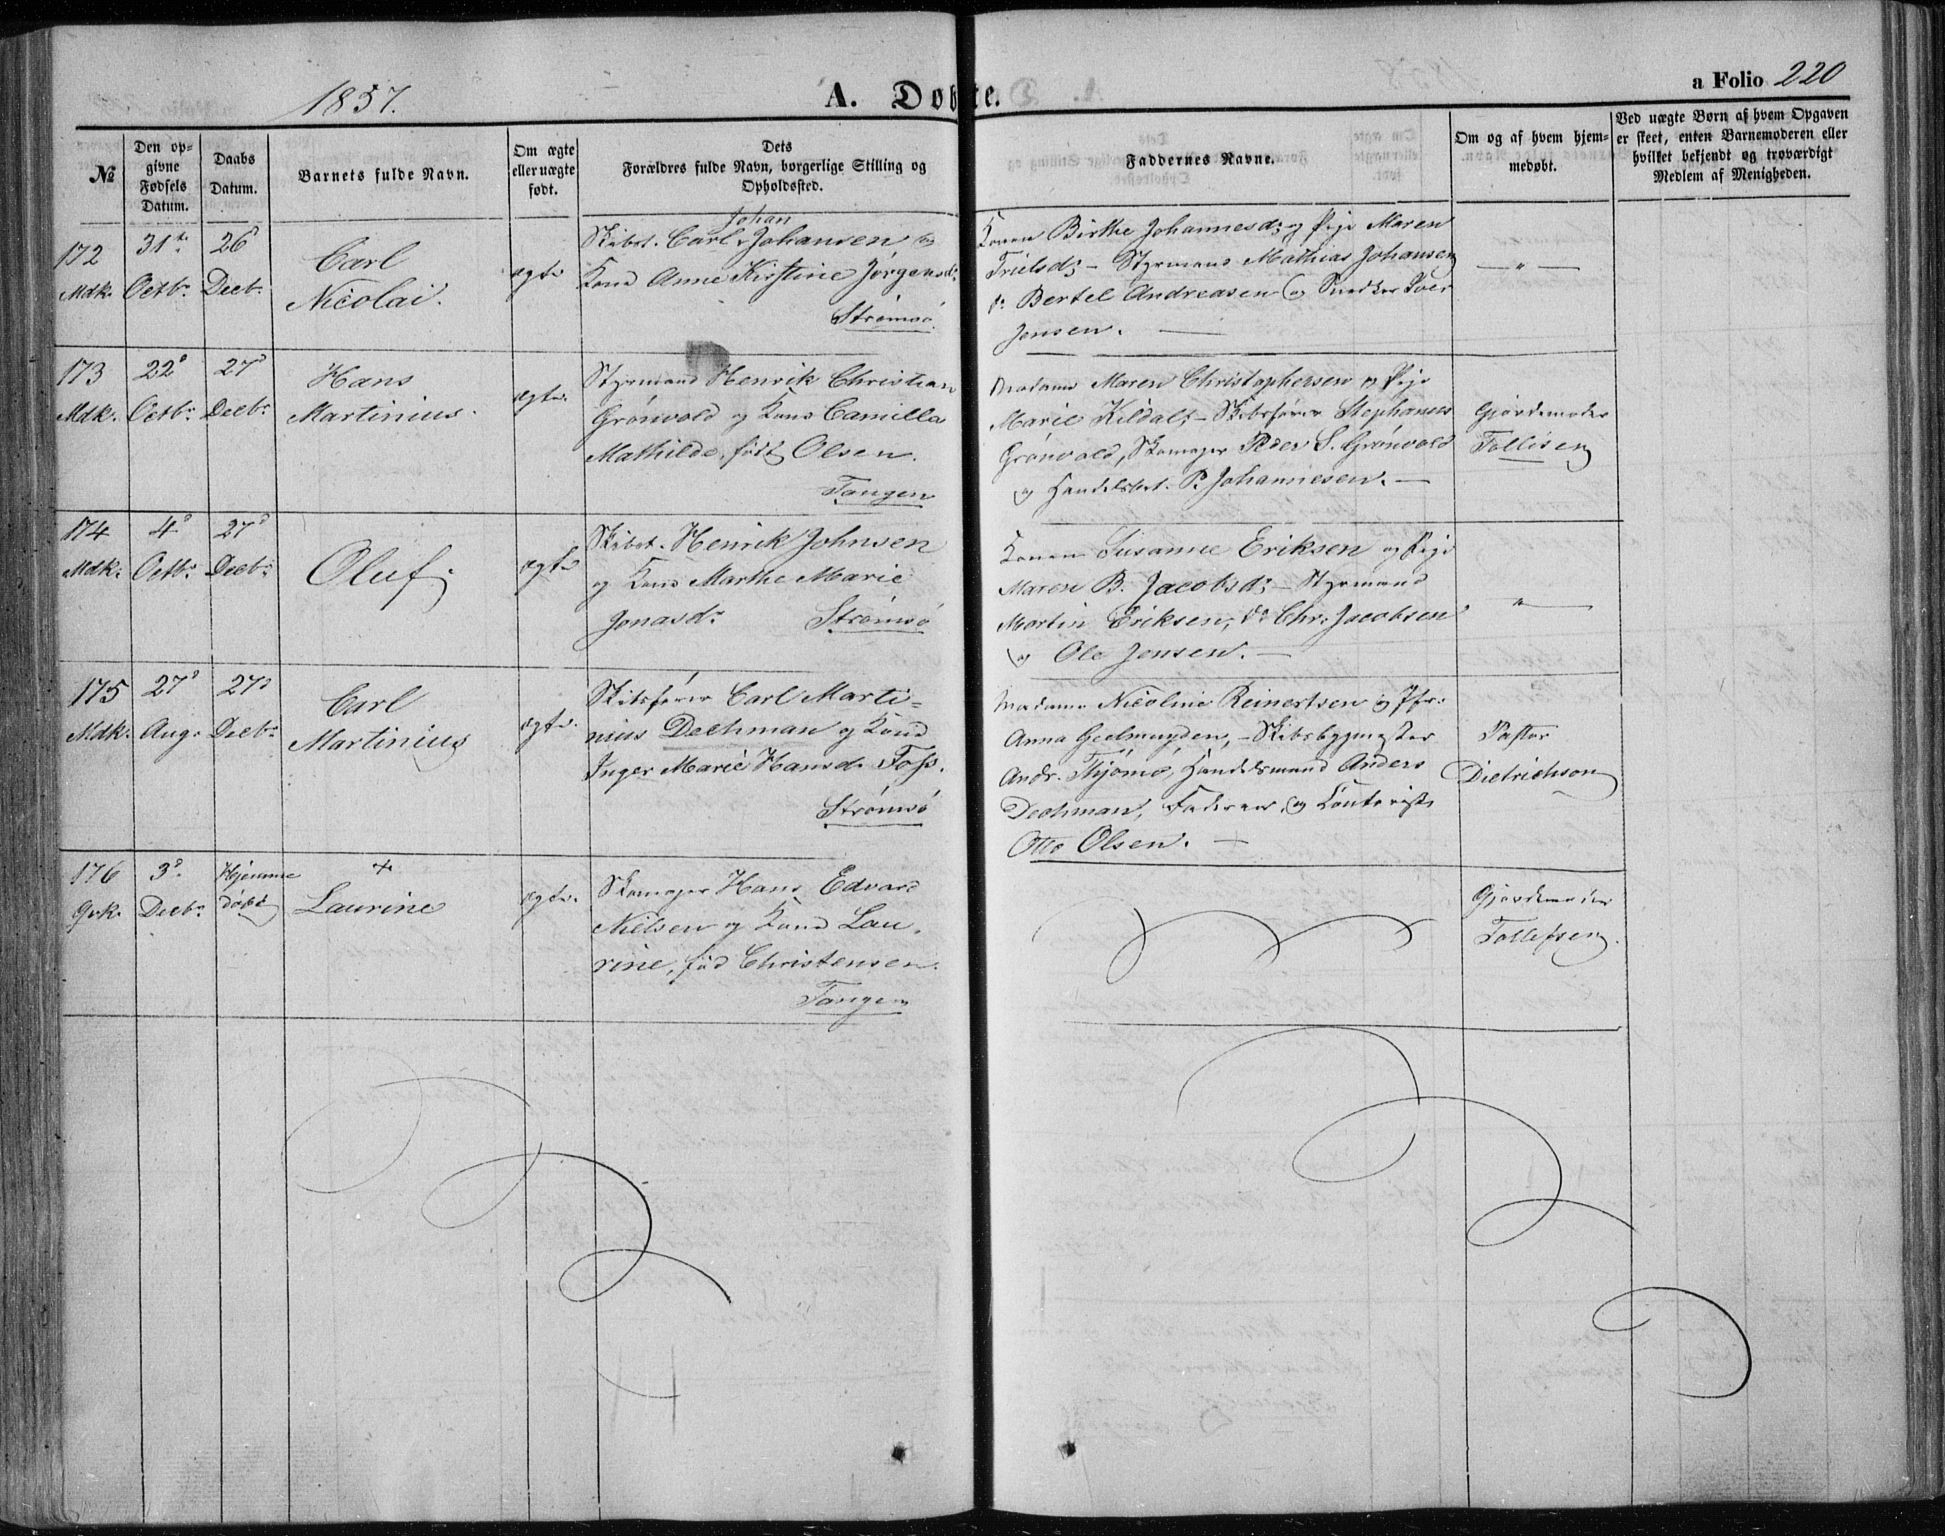 1857.
A. Døbte.
a Folio 220
№
Den opgivne Fødsels Datum.
Daabs Datum.
Barnets fulde Navn.
Om ægte eller uægte født.
Dets Forældres fulde Navn, borgerlige Stilling og Opholdssted.
Faddernes Navne.
Om og af hvem hjemmedøbt.
Ved uægte Børn af hvem Opgaven er skeet, enten Barnemoderen eller hvilket bekjendt og troværdigt Medlem af Menigheden.
172
Mdk.
31te
Octbr.
26d
Decbr.
Carl
Nicolai.
ægte
Johan
Skibst. Carl Johansen og
Kone Anne Kirstine Jørgensdr.
Strømsø.
Konen Birthe Johannesdr. og Pige Maren
Trielsdr. – Styrmand Mathias Johansen
do Bertel Andreasen og Snedker Iver
Jensen. —
— " —
173
Mdk.
22d
Octbr.
27d
Decbr.
Hans
Martinius.
ægte.
Styrmand Henrik Christian
Grönvold og Kone Camilla
Mathilde, født Olsen.
Tangen
Madame Maren Christophersen og Pige
Marie Kildal, – Skibsfører Stephanus
Grönvold, Skomager Peder S. Grönvold
og Handelsbet. P. Johannesen. —
Gjordemoder
Tollisen
174
Mdk.
4d
Octbr.
27d
Decbr.
Oluf.
ægte
Skibst. Henrik Johnsen
og Kone Marthe Marie
Jonasdr. Strømsö
Konen Susanne Eriksen og Pige
Maren B. Jacobsdr. – Styrmand
Martin Eriksen, do Chr. Jacobsen
og Ole Jensen. —
"
175
Mdk.
27d
Aug.
27d
Decbr.
Carl
Martinius
ægte.
Skibsfører Carl Marti-
nius Dechman og Kone
Inger Marie Hansdr. Foss.
Strømsö
Madame Nicoline Reinertsen og Jfr.
Anna Geelmuyden, – Skibsbygmester
Andr. Thjömö, Handelsmand Anders
Dechman, Faderen, og Contorist
Otto Olsen. —
Pastor
Dietrichson
176
Qvk.
3d
Decbr.
Hjemme
døbt
+
Laurine
ægte.
Skomager Hans Edvard
Nielsen og Kone Lau-
rine, fød Christensen.
Tangen
Gjordemoder
Tollefsen.